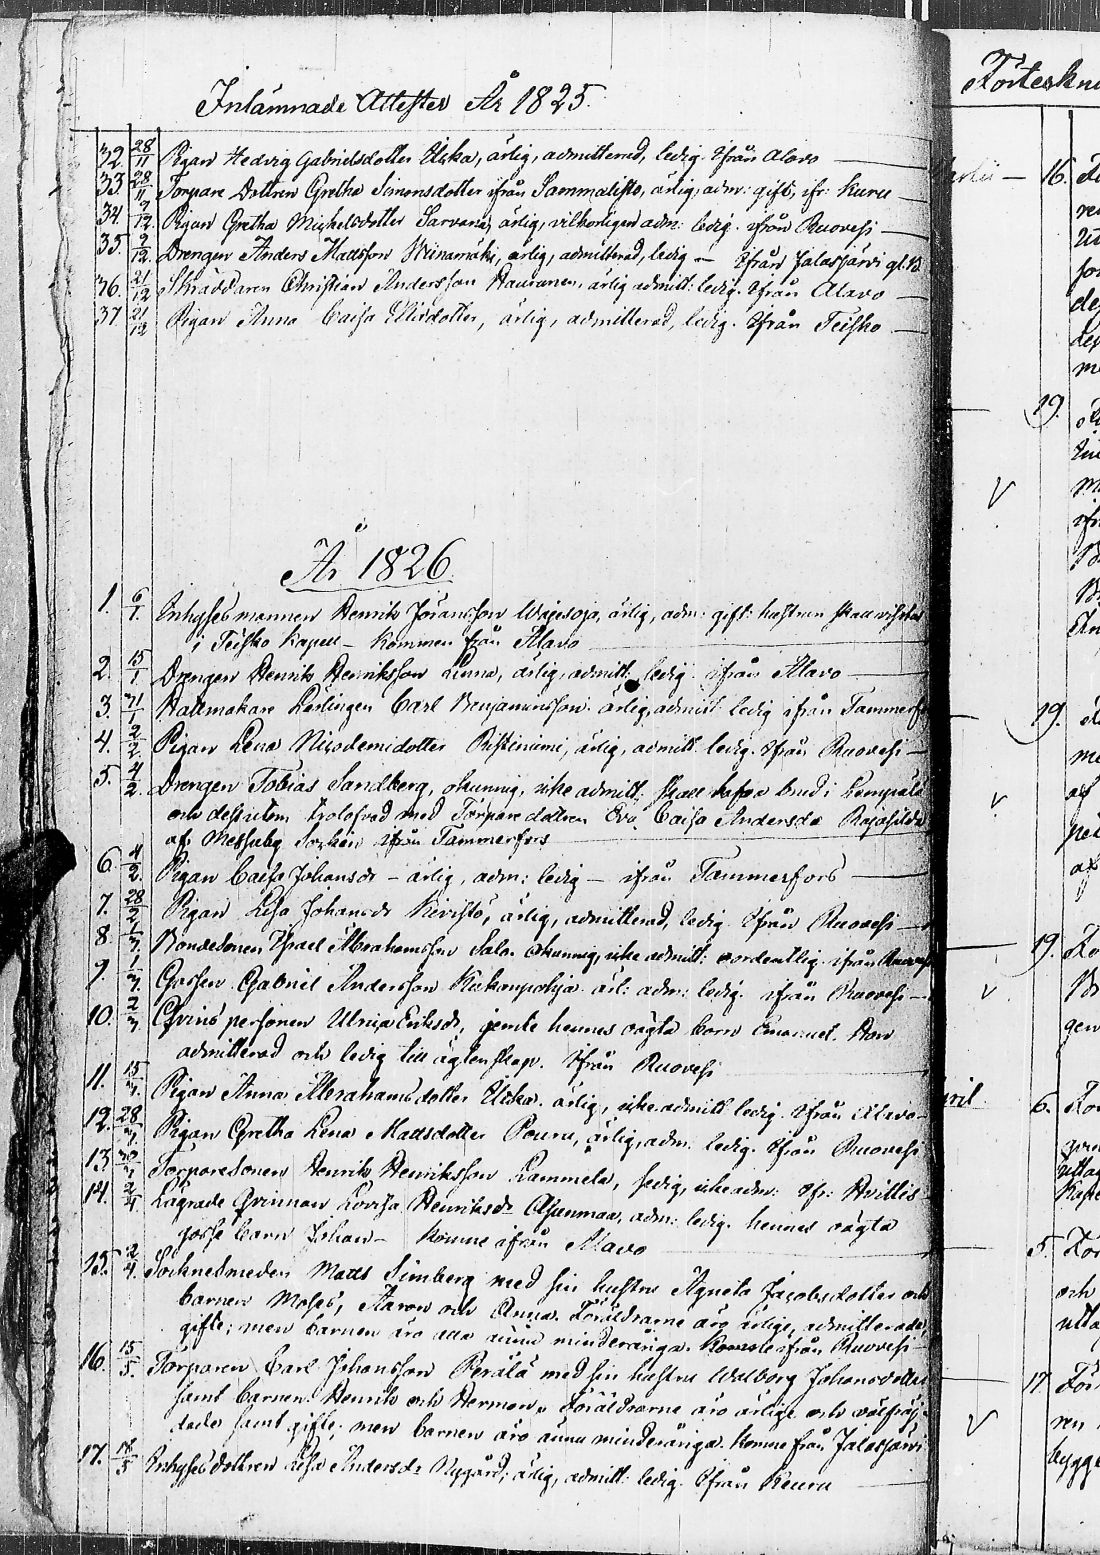 Inlämnade Attester År 1825.
32. 28/11 Pigan Hedvig Gabrielsdotter Uska, ärlig, admitterad, ledig. Ifrån Alavo
33. 28/11 Torpare Dottren Gretha Simonsdotter ifrån Sammalisto, ärlig, adm: gift, ifr: Kuru
34. 9/12. Pigan Gretha Michelsdotter Sarvana, ärlig, vilkorligen adm: ledig. ifrån Ruovesi
35. 9/12. Drengen Anders Mattsson Wiinamäki, ärlig, admitterad, ledig – Ifrån Jalasjärvi
36. 21/12 Skräddaren Christian Andersson Hauranen, ärlig admitt: ledig. Ifrån Alavo
37 21/12 Pigan Anna Caisa Ellisdotter, ärlig, admitterad, ledig. Ifrån Teisko
År 1826
1. 6/1. Inhysesmannen Henrik Jöransson Wajesoja, ärlig, adm: gift: hustrun skall vistas
i Teisko Kapell – Kommen från Alavo
2. 15/1 Drengen Henrik Henriksson Linna, ärlig, admitt: ledig. ifrån Alavo
3. 31/1 Hattmakare Lärlingen Carl Benjaminsson. ärlig, admitt ledig ifrån Tammerf
4. 2/2 Pigan Lena Nicodemidotter Ristinime, ärlig, admitt. ledig. Ifrån Ruovesi
5. 4/2. Drengen Tobias Sandberg, okunnig, icke admitt: skall hafva brud i Lempälä
och dessutom trolofvad med Torpare dottren Eva Caisa Andersdr
af Messuby Socken ifrån Tammerfors
6. 4/2. Pigan Caisa Johansdr – ärlig, adm: ledig – ifrån Tammerfors
7. 28/2 Pigan Lisa Johansdr Kivistö, ärlig, admitterad, ledig. Ifrån Ruovesi
8. 1/3. Bondesonen Israel Abrahamsson Salo. Okunnig, icke admitt: oordentlig. ifrån Ruovesi
9. 1/3. Gossen Gabriel Andersson Kukonpohja. ärl: adm: ledig. ifrån Ruovesi
10. 2/3 Qvins personen Ulrica Eriksdr, jemte hennes oägta barn Emanuel. Hon
admitterad och ledig till ägtenskap. Ifrån Ruovesi
11. 15/3. Pigan Anna Abrahamsdotter Uska. ärlig, icke admitt ledig. Ifrån Alavo
12. 28/3. Pigan Gretha Lena Mattsdotter Pouru, ärlig, adm. ledig. Ifrån Ruovesi
13 30/3 Torparesonen Henrik Henriksson Lammela, fredig, icke adm: Ifr: Hvittis
14. 2/4. Lägrade Qvinnan Lovisa Henriksdr Ahsenmaa, adm: ledig. hennes oägta
gosse barn Johan – Komne ifrån Alavo
15. 2/4. Socknesmeden Matts Simberg med sin hustru Agneta Jacobsdotter och
barnen Moses, Aaron och Anna. Föräldrarne äro ärlige, admitterade,
gifte; men barnen äro alla ännu minderåriga. Komne ifrån Ruovesi
16. 15/5. Torparen Carl Johansson Perälä med sin hustru Walborg Johansdotter
samt barnen Henrik och Herman. Föräldrarne äro ärlige och välfräj-
dade samt gifte; men barnen äro ännu minderåriga. Komne från Jalasjärvi
17. 18/5 Inhysesdottren Lisa Andersdr Nygård, ärlig, admitt. ledig. Ifrån Keuru
Förteckn
16.
19.
19.
19.
6.
5.
17